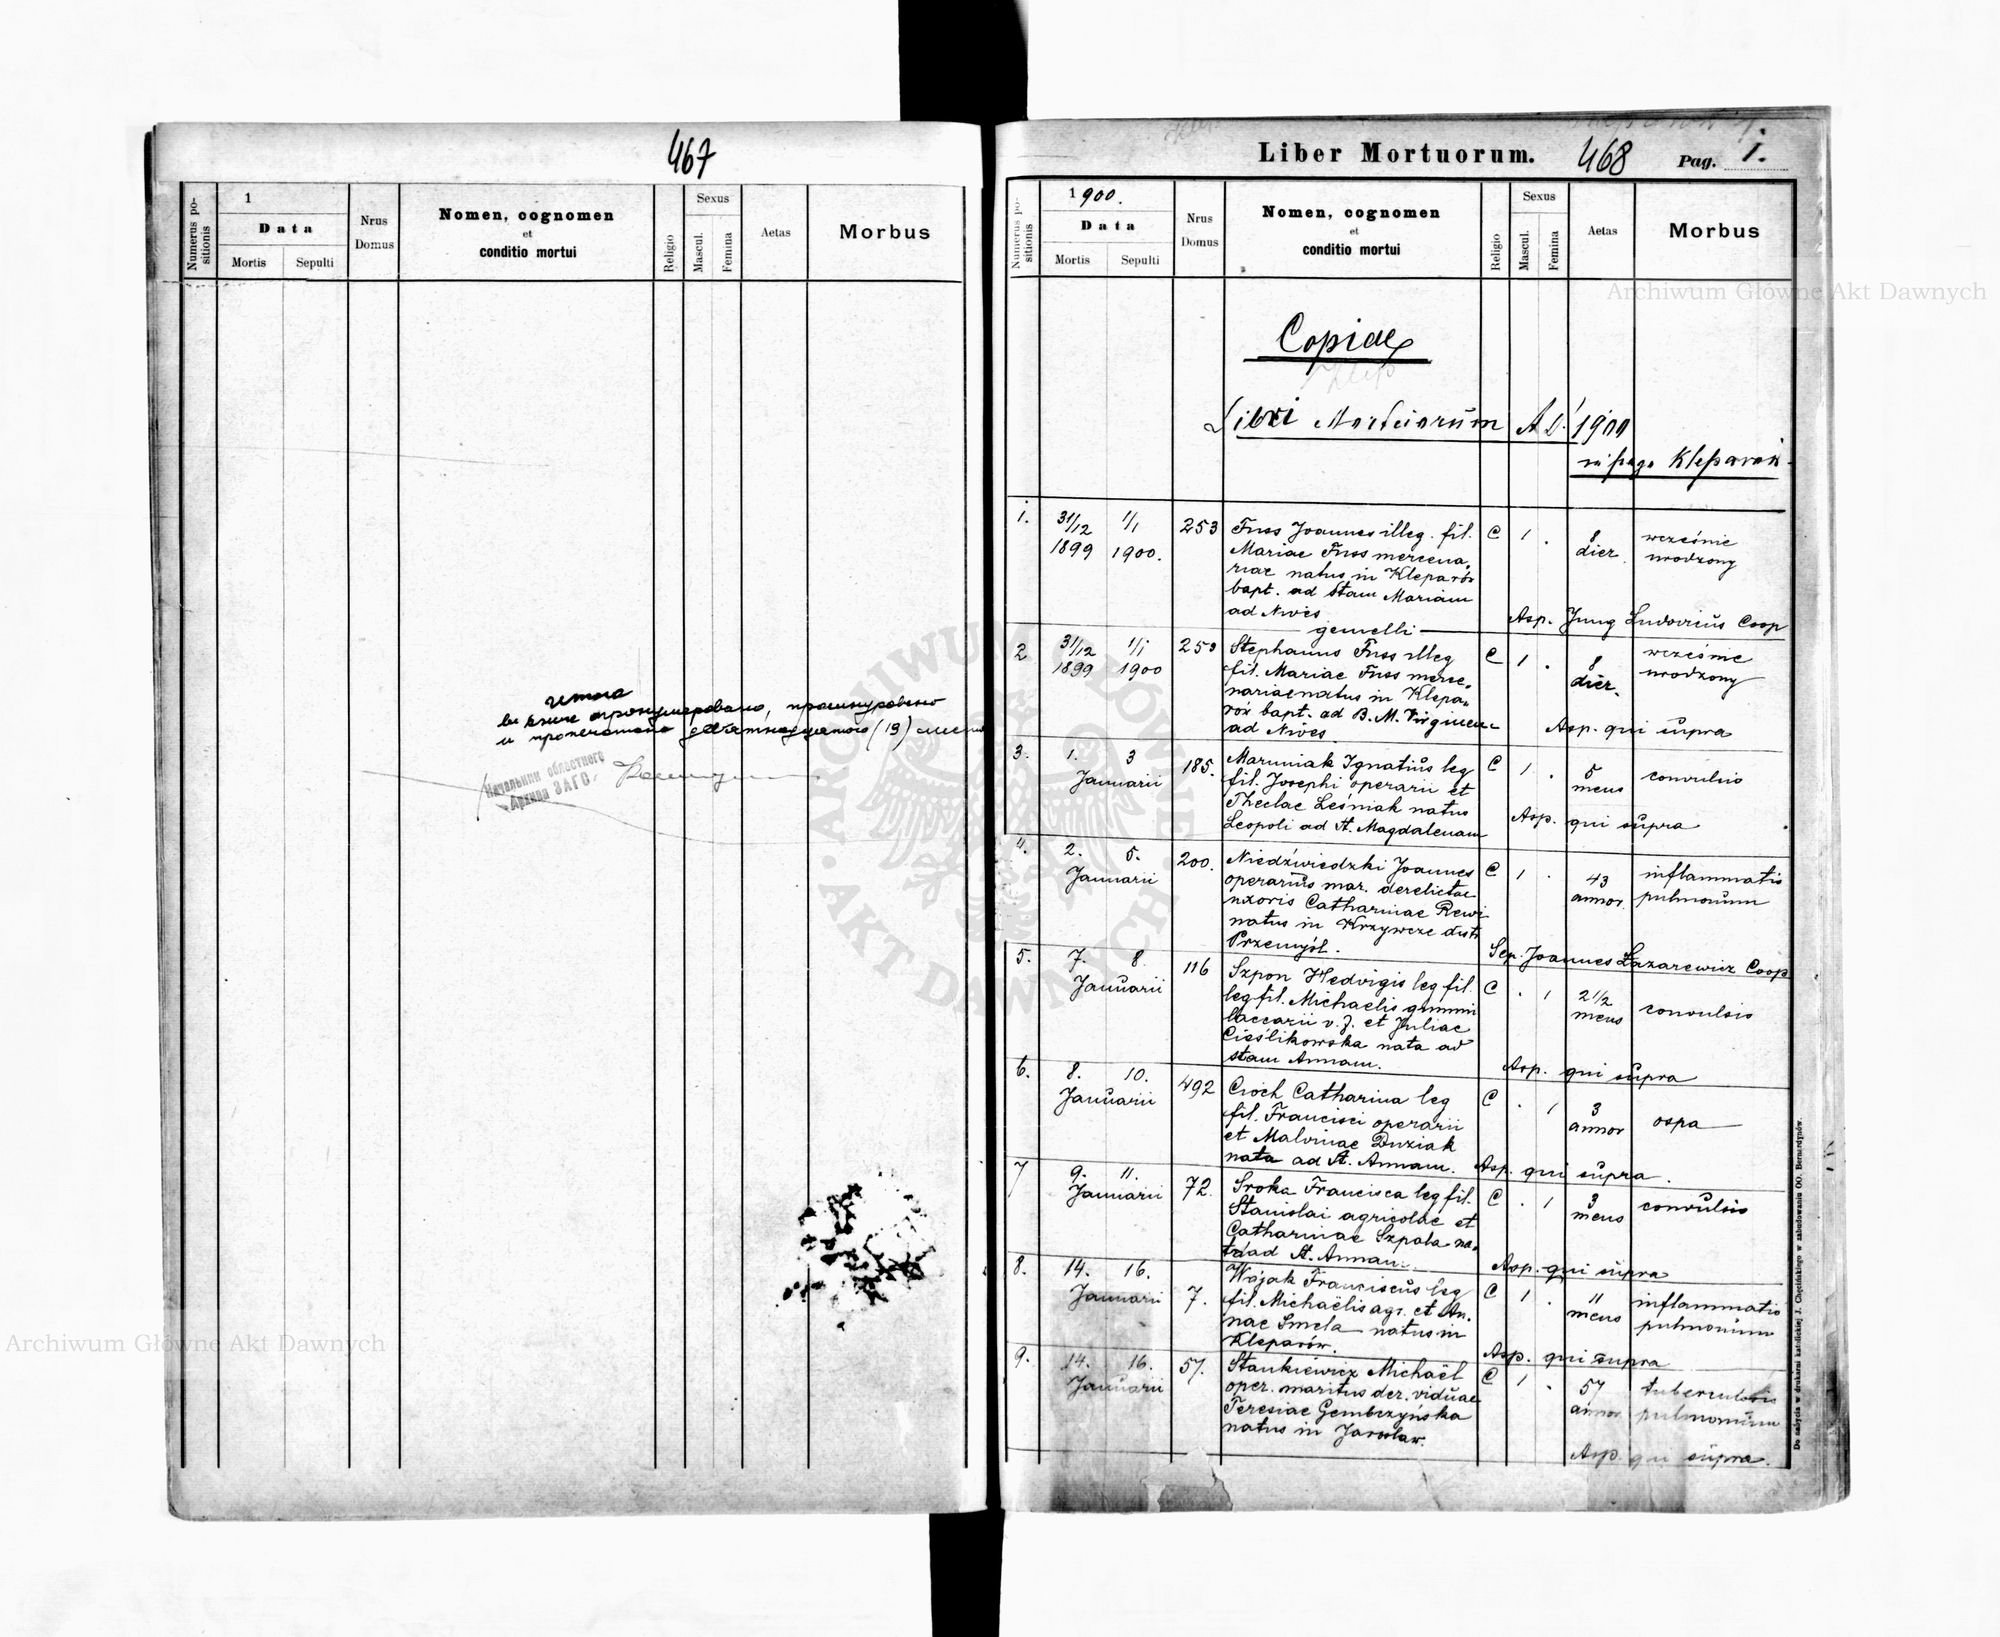 467
Numerus positionis
1
Data
Mortis
Sepulti
Nrus
Domus
Nomen, cognomen
et
conditio mortui
Religio
Sexus
Mascul.
Femina
Aetas
Morbus
Итого
в книге пронумеровано, прошнуровано
и пропечатано девятнадцатого (19)
Начальник областного
Архива ЗАГС
Liber Mortuorum. 468 Pag. 1.
Numerus positionis
1900.
Data
Mortis
Sepulti
Nrus
Domus
Nomen, cognomen
et
conditio mortui
Religio
Sexus
Mascul.
Femina
Aetas
Morbus
Copiae
Libri Mortuorum A D. 1900
in pago Kleparów
1. 31/12 1/1 253 Fuss Joannes illeg. fil. C 1 . 8 wcześnie
1899 1900. Mariae Fuss mercena, dier. urodzony
riae natus in Kleparów
bapt. ad Stam Mariam
ad Nives Asp. Jung Ludovicus Coop
gemelli
2 31/12 1/1 253 Stephanus Fuss illeg C 1 . 8 wcześnie
1899 1900 fil. Mariae Fuss merce, dier. urodzony
nariae natus in Klepa,
rów bapt. ad B. M. Virginem
ad Nives. Asp. qui supra
3. 1. 3 185. Maruniak Ignatius leg C 1 . 5 convulsio
Januarii fil. Josephi operarii et mens
Theclae Leśniak natus
Leopoli ad St. Magdalenam Asp. qui supra
4. 2. 5. 200. Niedźwiedzki Joannes C 1 . 43 inflammatio
Januarii operarius mar. derelictae annor. pulmonum
uxoris Catharinae Rewi
natus in Krzywcze distr
Przemyśl. Sep. Joannes Łazarewicz Coop
5. 7. 8. 116 Szpon Hedvigis leg fil. C . 1 2 1/2 convulsio
Januarii leg fil. Michaelis gummi mens
laccarii v. f. et Juliae
Cieślikowska nata ad
stam Annam. Asp. qui supra
6. 8. 10. 492 Cioch Catharina leg C . 1 3 ospa
Januarii fil. Francisci operarii annor
et Malvinae Duziak
nata ad St. Annam. Asp. qui supra.
7 9. 11. 72. Sroka Francisca leg fil. C . 1 3 convulsio
Januarii Stanislai agricolae et mens
Catharinae Szpala na,
ta ad St. Annam. Asp. qui supra
8. 14. 16. 7. Wójak Franciscus leg C 1 . 11 inflammatio
Januarii fil. Michaëlis agr. et An, mens pulmonum
nae Smela natus in
Kleparów. Asp. qui supra
9. 14. 16. 57. Stankiewicz Michaël C 1 . 57 tuberculosis
Januarii oper. maritus der. viduae annor pulmonum
Teresiae Gembczyńska
natus in Jarosław.
Asp. qui supra.
Do nabycia w drukarni katolickiej J. Chęcińskiego w zabudowaniu OO. Bernardynów.
Archiwum Główne Akt Dawnych
Archiwum Główne Akt Dawnych
ARCHIWUM GŁÓWNE
AKT DAWNYCH